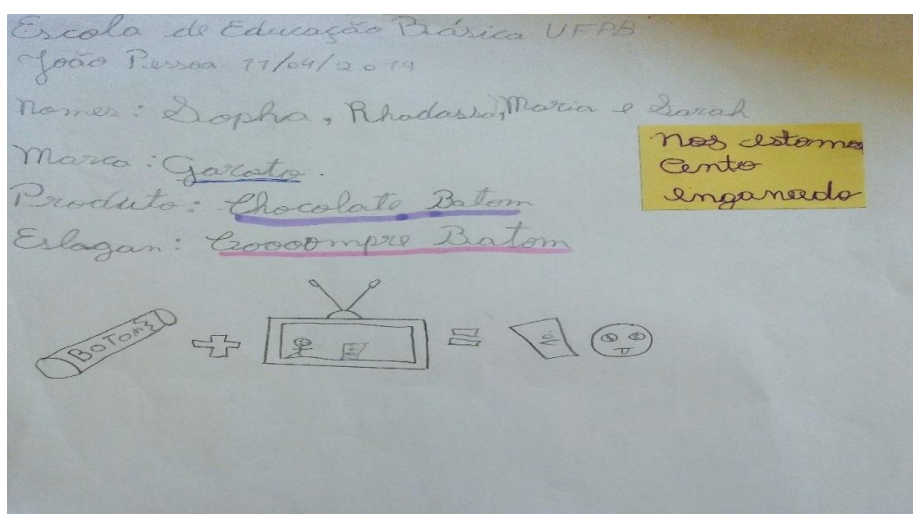 Escola de Educação Básica UFPB
João Pessoa 11/04/2019
Nomes: Sopha, Rhadassa, Maria e Sarah
Marca: Garoto.
Produto: Chocolate Batom
Eslogan: Coooompre Batom
nos estamos
Cento
enganado
BOTOM